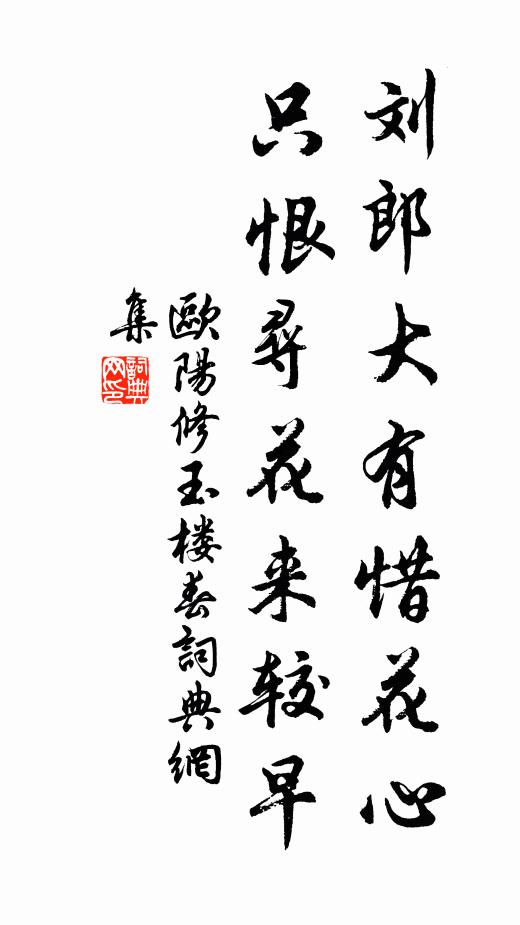 刘郎大有惜花心
只恨尋花来较早
歐陽修玉楼春詞典網
集
詞典网印